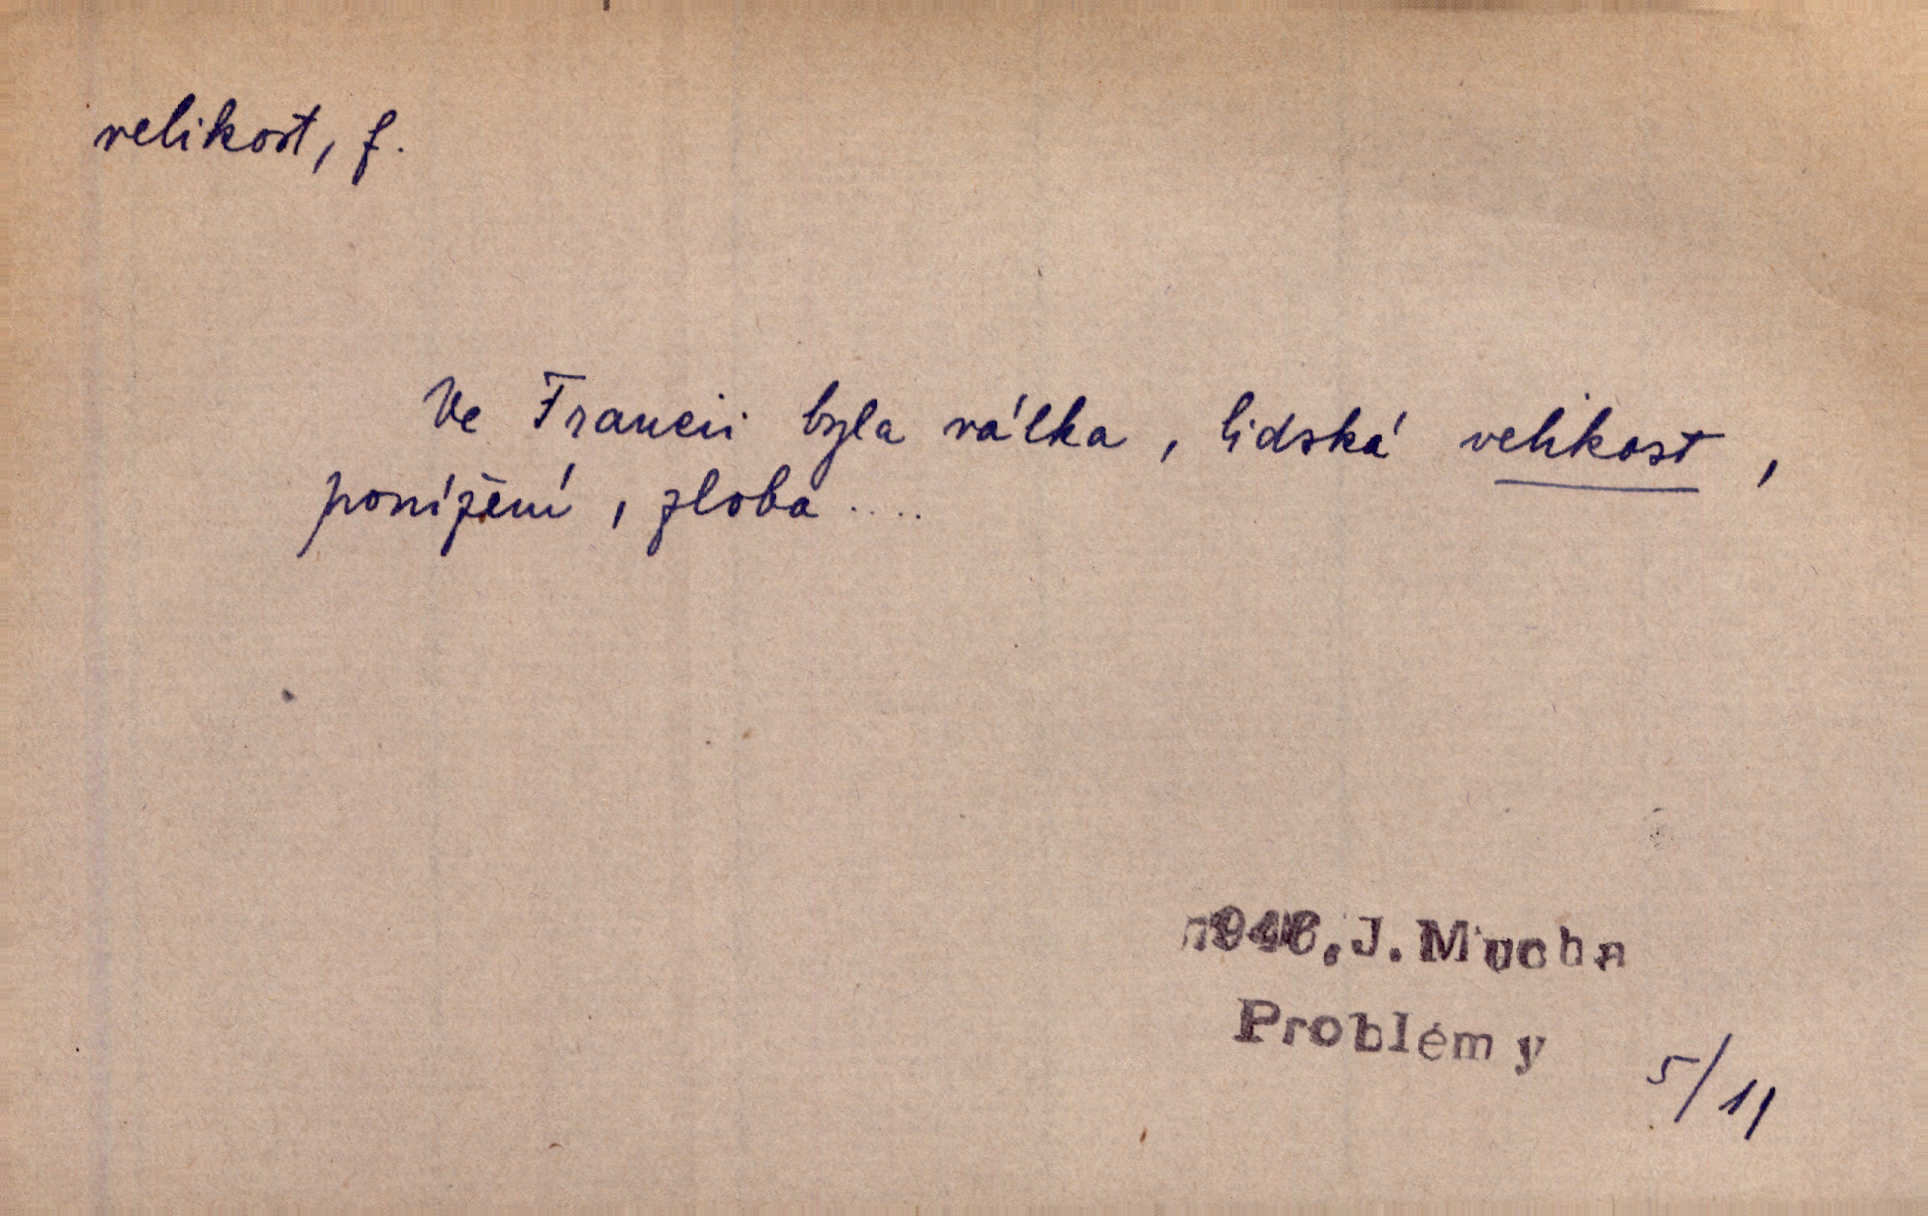 velikost, f.
Ve Francii byla válka, lidská velikost,
ponížení, zloba ....
1946. J. Mucha
Problémy
5/11